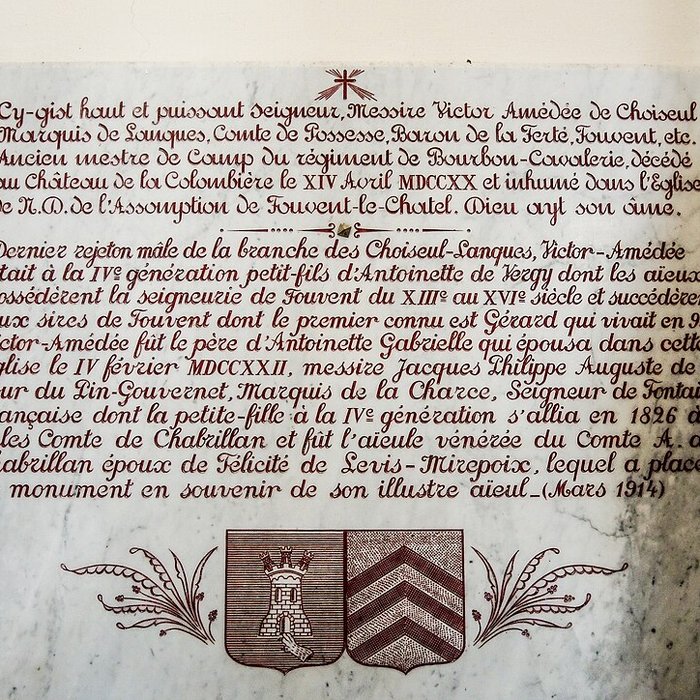 Cy-gist haut et puissant Seigneur, Messire Victor Amédée de Choiseul
Marquis de Lanques, Comte de Possesse, Baron de la Ferté, Fouvent, etc.
Ancien mestre de Camp du régiment de Bourbon-Cavalerie, décédé
au Château de la Colombière le XIV Avril MDCCXX et inhumé dans l'Eglise
de N.D. de l'Assomption de Fouvent-le-Chatel. Dieu ayt son âme.
Dernier rejeton mâle de la branche des Choiseul-Lanques, Victor-Amédée
était à la IVe génération petit-fils d'Antoinette de Vergy dont les aïeux
possédèrent la seigneurie de Fouvent du XIIIe au XVIe siècle et succédèren
aux sires de Fouvent dont le premier connu est Gérard qui vivait en 9
ictor-Amédée fût le père d'Antoinette Gabrielle qui épousa dans cette
glise le IV février MDCCXXII, messire Jacques Philippe Auguste de
our du Pin-Gouvernet, Marquis de la Charce, Seigneur de Fontai
rançaise dont la petite-fille à la IVe génération s'allia en 1826 à
les Comte de Chabrillan et fût l'aïeule vénérée du Comte A. d
habrillan époux de Félicité de Levis-Mirepoix, lequel a placé
monument en souvenir de son illustre aïeul_(Mars 1914)